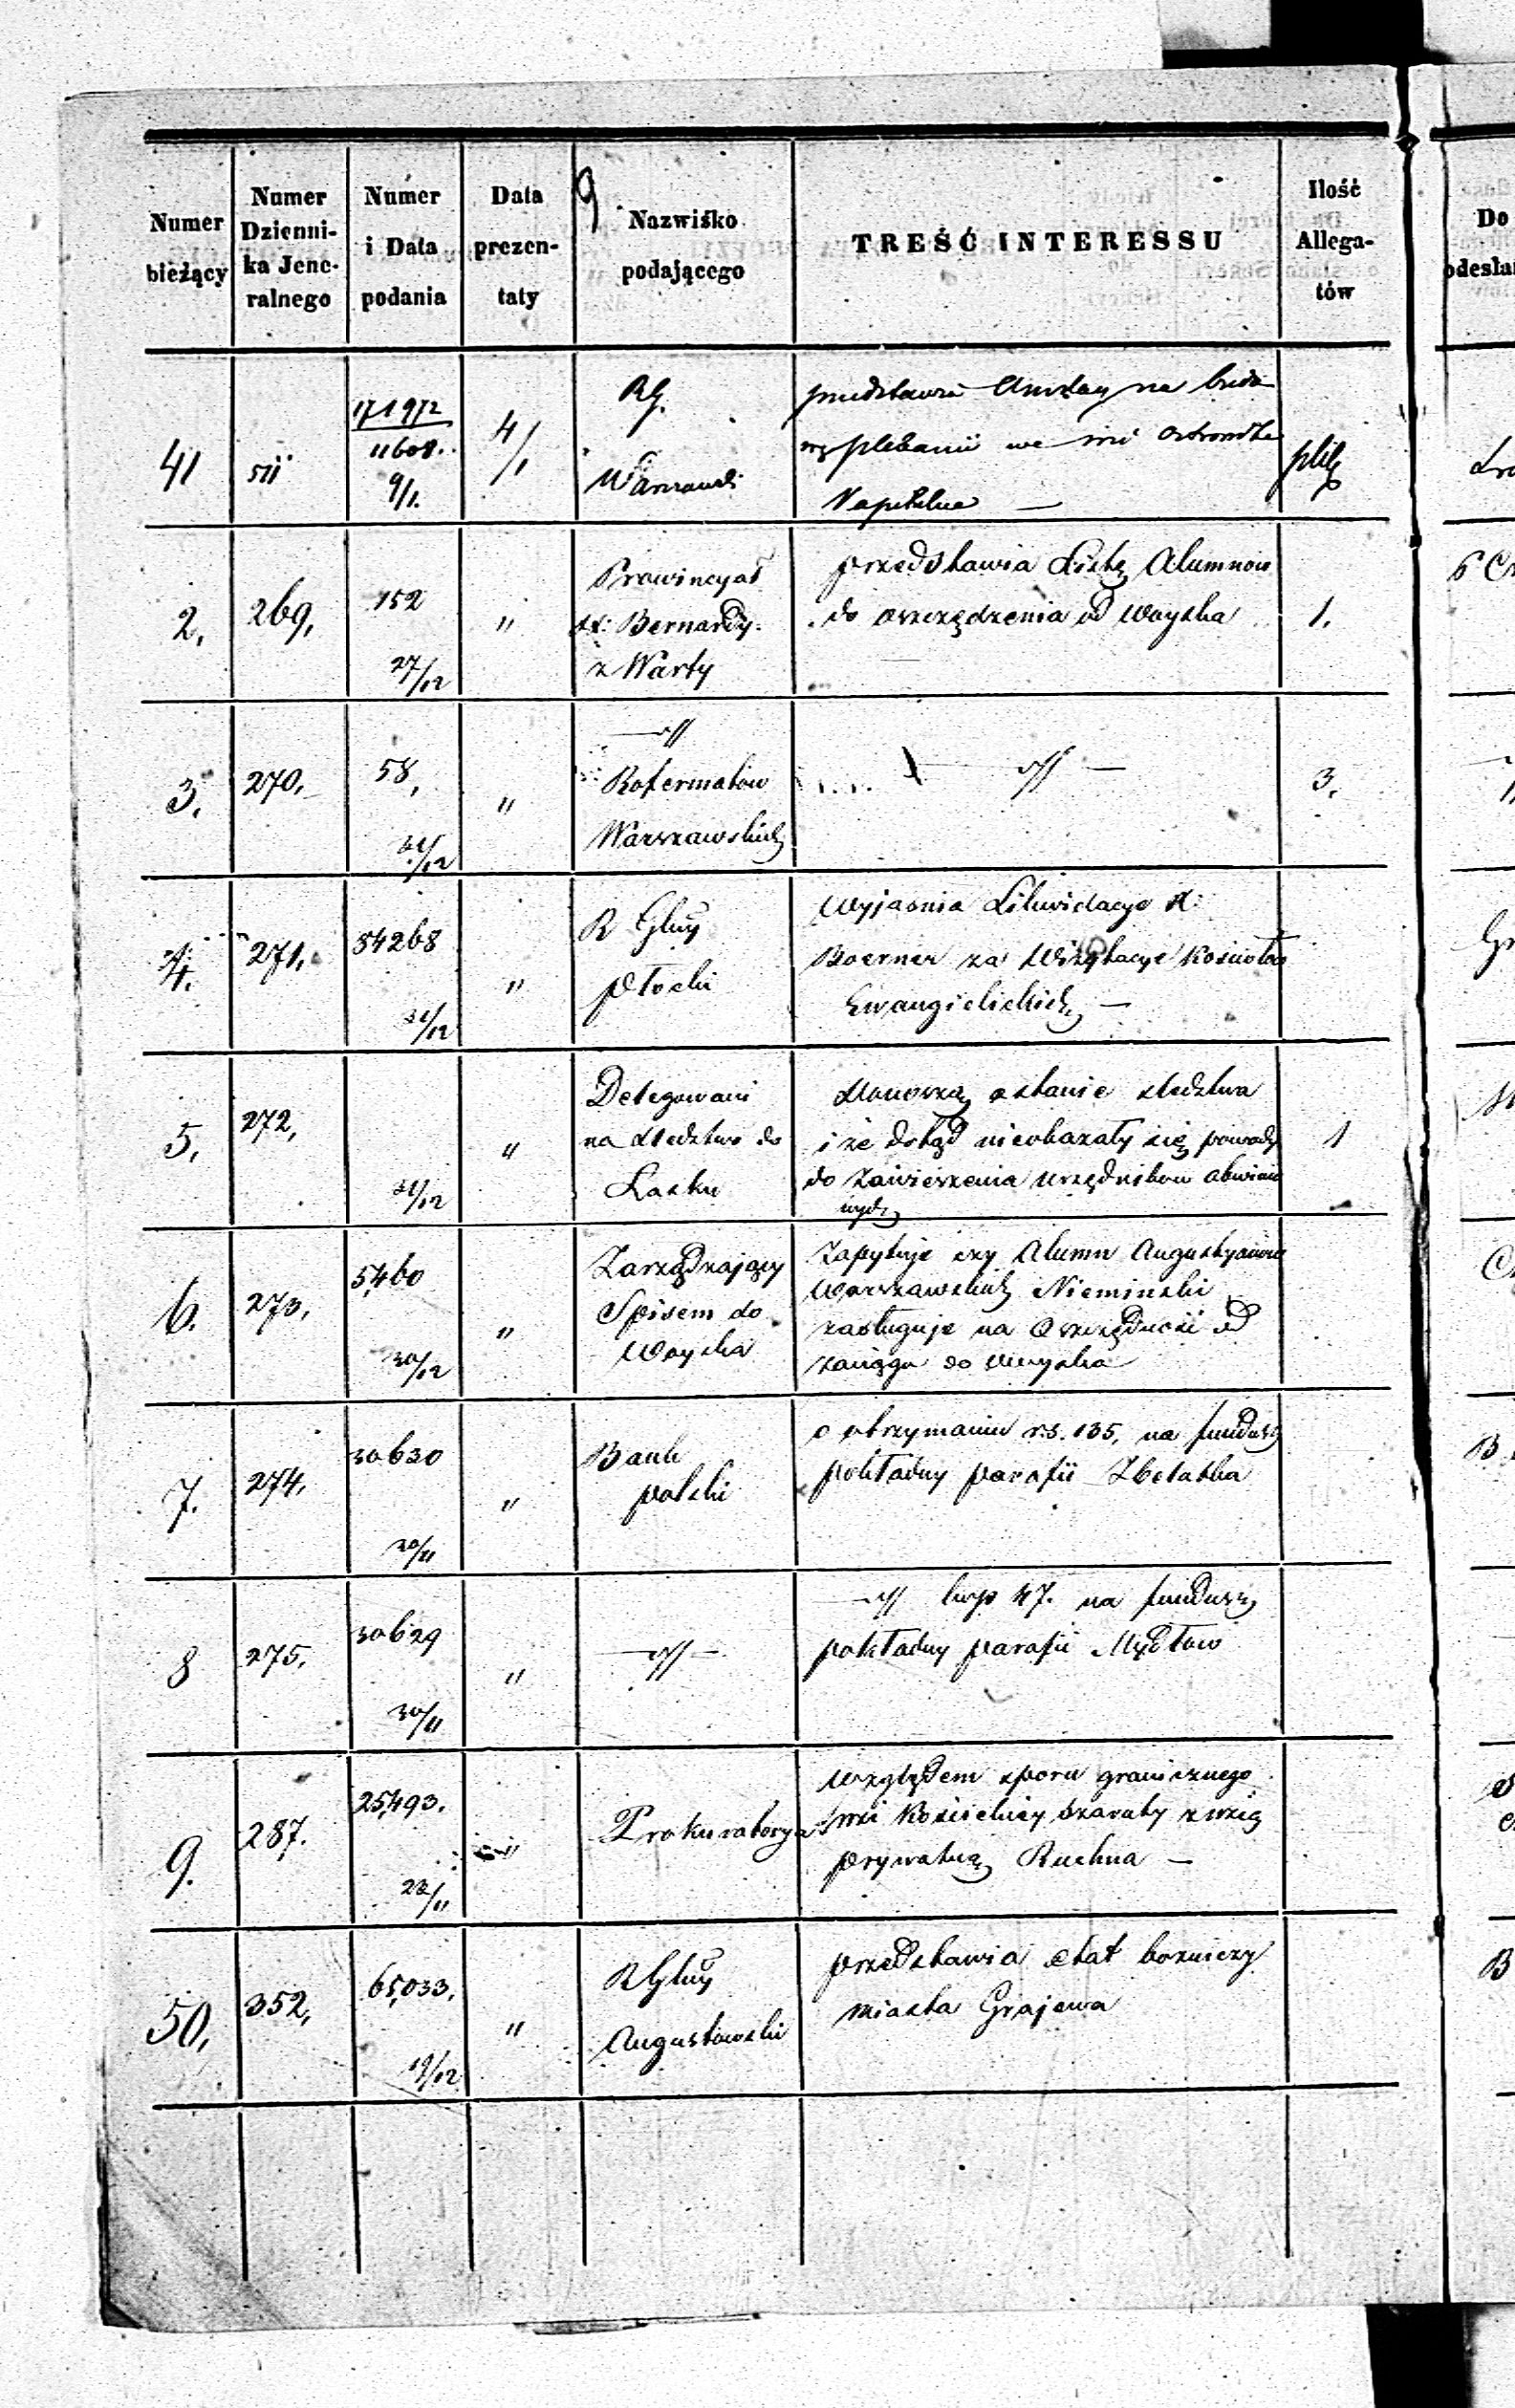 9
Numer bieżący
Numer Dzienni-ka Jene-ralnego
Numer i Data podania
Data prezen-taty
Nazwisko podającego
TREŚĆ INTERESSU
Ilość Allega-tów
Do
odesła
41
511
171972
11608.
9/1.
4/1
RG.
Warszawski
przedstawia Anszlag na budo
wę plebanii we wsi
2,
269,
152
27/12
"
Prowincyał
XX: Bernardy.
z Warty
przedstawia Listę Alumnow
do oszczędzenia od Woyska
1.
3.
270.
58,
31/12
"
Reformatów
Warszawskich
3.
4.
271.
54268
31/12
"
R Glny
Płocki
Wyjaśnia Likwidacye X:
Boerner za Wizytacye Kościołów
Ewangielickich —
5.
272,
31/12
"
Delegowani
na Sledztwo do
Łasku
Donoszą o stanie sledztwa
i że dotąd nieokazały się powody
do zawieszenia urzędnikow obwinio
nych
1
6.
273,
5,460
30/12
"
Zarządzający
Spisem do
Woyska
Zapytuje czy Alumn Augustyanów
Warszawskich Nieminski
zasługuje na Oszczędność od
zaciągu do Woyska
7.
274.
30630
30/11
"
Bank
polski
o otrzymaniu r.s. 135, na fundusz
pokładny parafii
B
8
275.
30629
30/11
"
kop 47. na fundusz
pokładny parafii Mydłow
9.
287.
25,493.
23/11
"
Prokuratorya
Względem sporu granicznego
wsi Kościelnéy Szaraty z wsią
prywatną Ruchna —
50,
352,
65,033,
19/12
"
R Glny
Augustowski
przedstawia etat bozniczy
miasta Grajewa
B